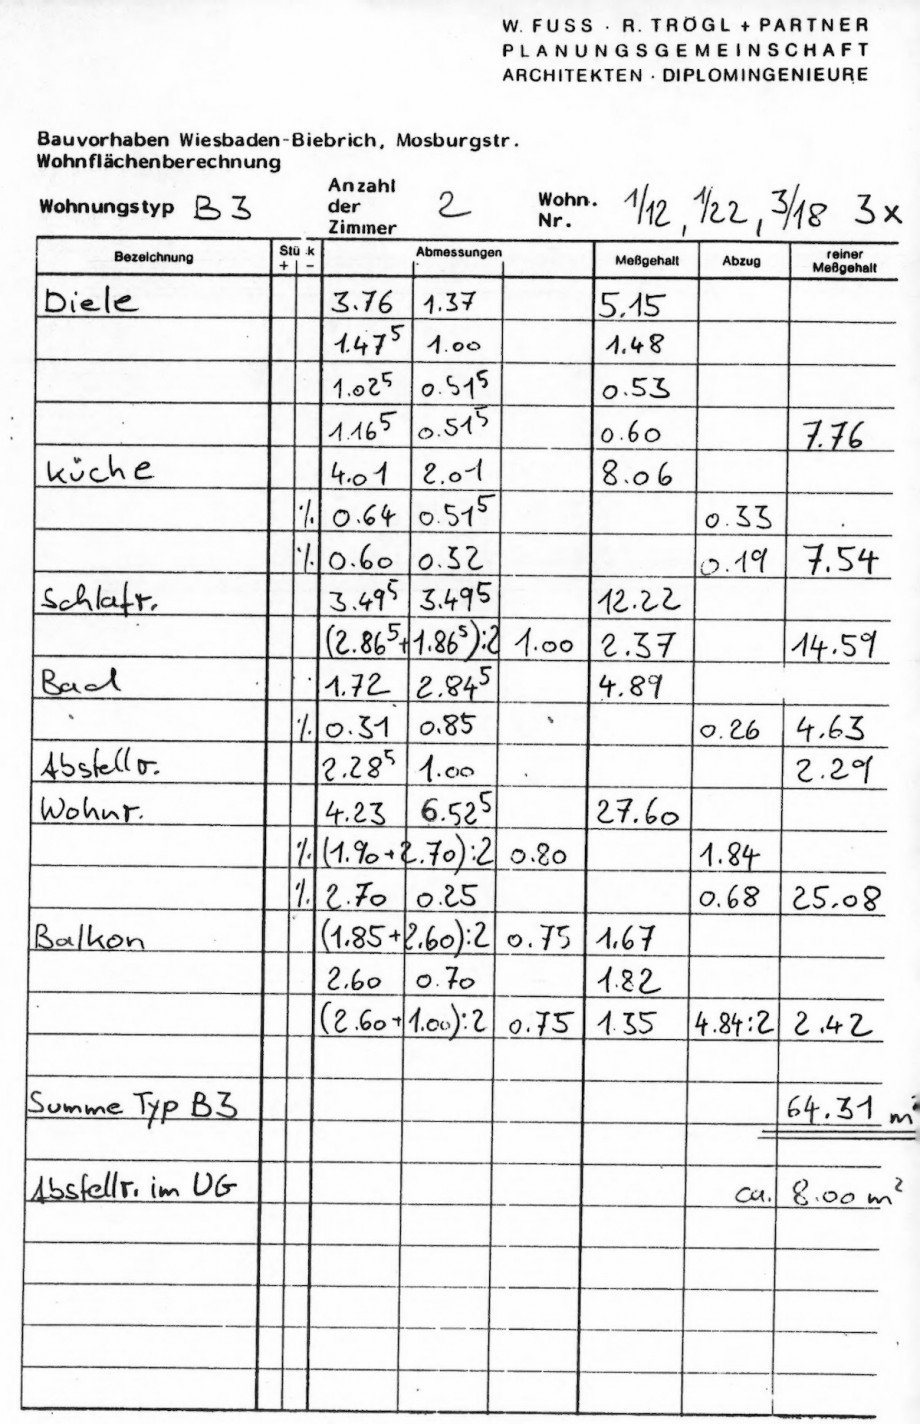 W. FUSS · R. TRÖGL + PARTNER
PLANUNGSGEMEINSCHAFT
ARCHITEKTEN · DIPLOMINGENIEURE
Bauvorhaben Wiesbaden-Biebrich, Mosburgstr.
Wohnflächenberechnung
Wohnungstyp B 3 Anzahl der Zimmer 2 Wohn. Nr. 1/12, 1/22, 3/18 3x
Bezeichnung Stück + - Abmessungen Meßgehalt Abzug reiner Meßgehalt
Diele 3.76 1.37 5.15
1.47⁵ 1.00 1.48
1.02⁵ 0.51⁵ 0.53
1.16⁵ 0.51⁵ 0.60 7.76
Küche 4.01 2.01 8.06
·/. 0.64 0.51⁵ 0.33
·/. 0.60 0.32 0.19 7.54
Schlafr. 3.49⁵ 3.49⁵ 12.22
(2.86⁵+1.86⁵):2 1.00 2.37 14.59
Bad 1.72 2.84⁵ 4.89
·/. 0.31 0.85 0.26 4.63
Abstellr. 2.28⁵ 1.00 2.29
Wohnr. 4.23 6.52⁵ 27.60
·/. (1.90+2.70):2 0.80 1.84
·/. 2.70 0.25 0.68 25.08
Balkon (1.85+2.60):2 0.75 1.67
2.60 0.70 1.82
(2.60+1.00):2 0.75 1.35 4.84:2 2.42
Summe Typ B3 64.31 m²
Abstellr. im UG ca. 8.00 m²